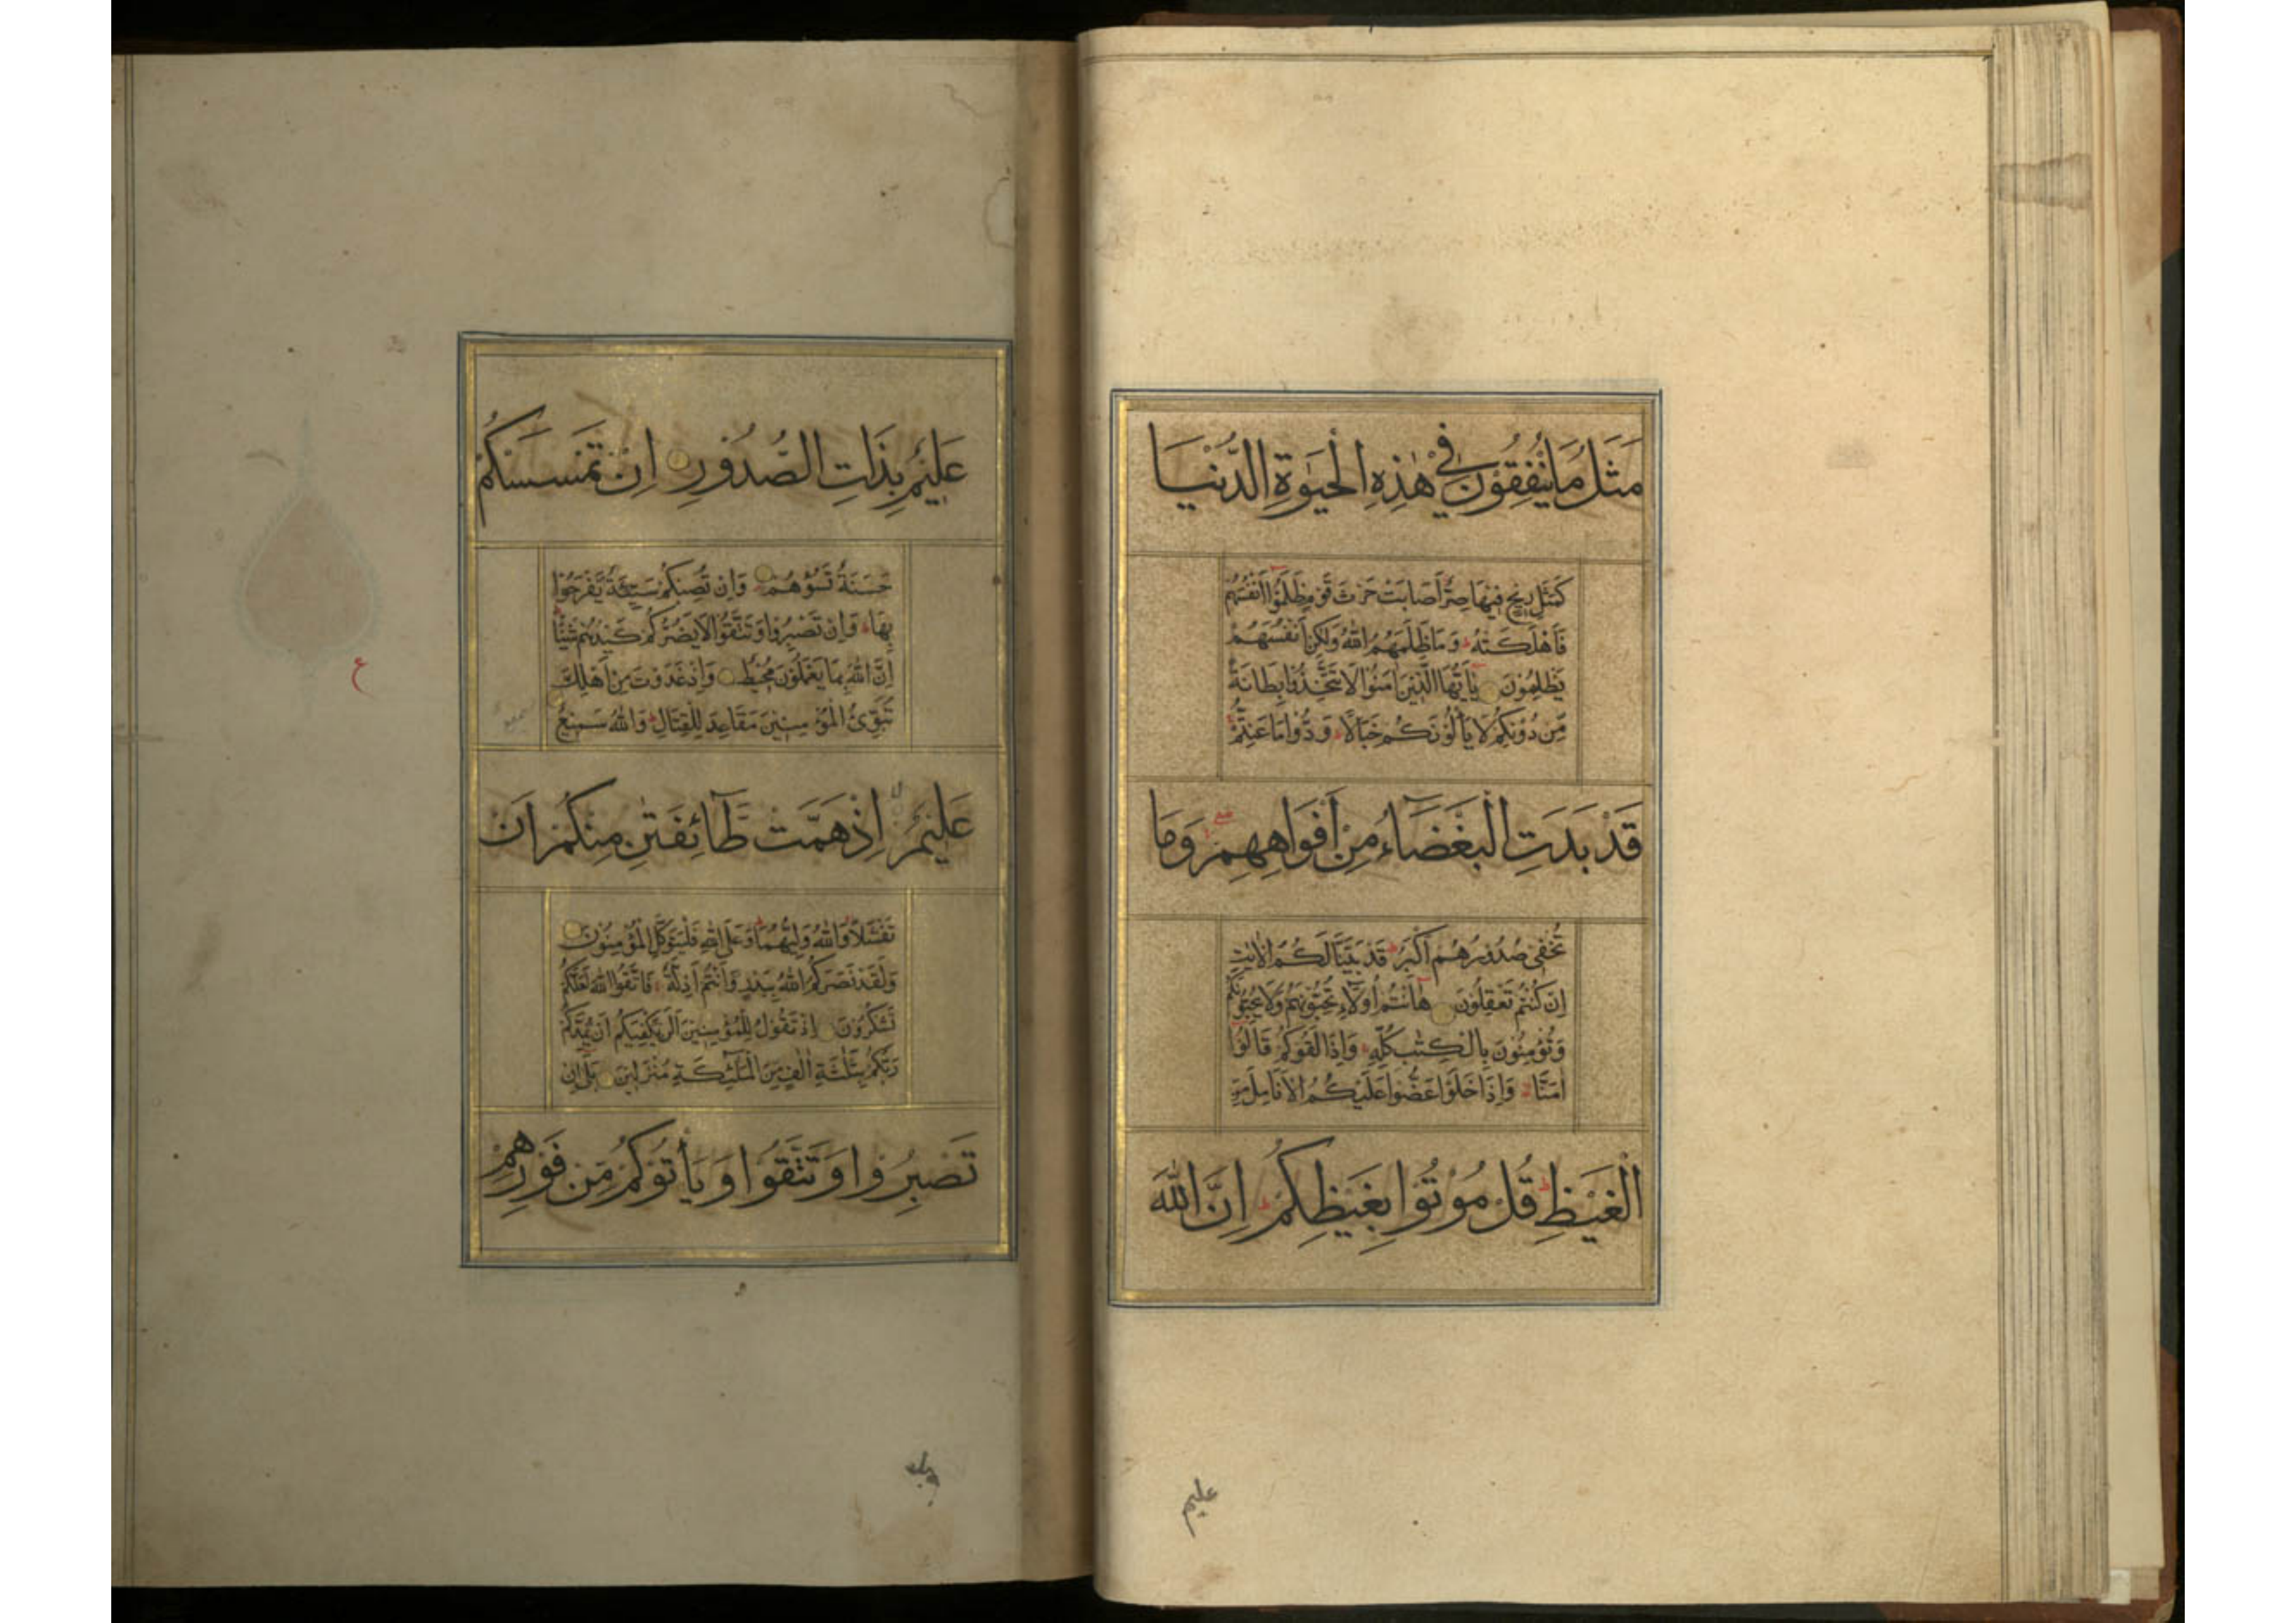 مَثَلُ مَا يُنْفِقُوْنَ فِيْ هٰذِهِ الْحَيٰوةِ الدُّنْيَا
كَمَثَلِ رِيْحٍ فِيْهَا صِرٌّ اَصَابَتْ حَرْثَ قَوْمٍ ظَلَمُوْا اَنْفُسَهُمْ
فَاَهْلَكَتْهُ وَمَا ظَلَمَهُمُ اللّٰهُ وَلٰكِنْ اَنْفُسَهُمْ
يَظْلِمُوْنَ يٰاَيُّهَا الَّذِيْنَ اٰمَنُوْا لَا تَتَّخِذُوْا بِطَانَةً
مِّنْ دُوْنِكُمْ لَا يَأْلُوْنَكُمْ خَبَالًا وَدُّوْا مَا عَنِتُّمْ
قَدْ بَدَتِ الْبَغْضَآءُ مِنْ اَفْوَاهِهِمْ وَمَا
تُخْفِيْ صُدُوْرُهُمْ اَكْبَرُ قَدْ بَيَّنَّا لَكُمُ الْاٰيٰتِ
اِنْ كُنْتُمْ تَعْقِلُوْنَ هٰاَنْتُمْ اُولَآءِ تُحِبُّوْنَهُمْ وَلَا يُحِبُّوْنَكُمْ
وَتُؤْمِنُوْنَ بِالْكِتٰبِ كُلِّهٖ وَاِذَا لَقُوْكُمْ قَالُوْا
اٰمَنَّا وَاِذَا خَلَوْا عَضُّوْا عَلَيْكُمُ الْاَنَامِلَ مِنَ
الْغَيْظِ قُلْ مُوْتُوْا بِغَيْظِكُمْ اِنَّ اللّٰهَ
عليم
عَلِيْمٌ بِذَاتِ الصُّدُوْرِ اِنْ تَمْسَسْكُمْ
حَسَنَةٌ تَسُؤْهُمْ وَاِنْ تُصِبْكُمْ سَيِّئَةٌ يَّفْرَحُوْا
بِهَا وَاِنْ تَصْبِرُوْا وَتَتَّقُوْا لَا يَضُرُّكُمْ كَيْدُهُمْ شَيْئًا
اِنَّ اللّٰهَ بِمَا يَعْمَلُوْنَ مُحِيْطٌ وَاِذْ غَدَوْتَ مِنْ اَهْلِكَ
تُبَوِّئُ الْمُؤْمِنِيْنَ مَقَاعِدَ لِلْقِتَالِ وَاللّٰهُ سَمِيْعٌ
عَلِيْمٌ اِذْ هَمَّتْ طَّآئِفَتٰنِ مِنْكُمْ اَنْ
تَفْشَلَا وَاللّٰهُ وَلِيُّهُمَا وَعَلَى اللّٰهِ فَلْيَتَوَكَّلِ الْمُؤْمِنُوْنَ
وَلَقَدْ نَصَرَكُمُ اللّٰهُ بِبَدْرٍ وَّاَنْتُمْ اَذِلَّةٌ فَاتَّقُوا اللّٰهَ لَعَلَّكُمْ
تَشْكُرُوْنَ اِذْ تَقُوْلُ لِلْمُؤْمِنِيْنَ اَلَنْ يَّكْفِيَكُمْ اَنْ يُّمِدَّكُمْ
رَبُّكُمْ بِثَلٰثَةِ اٰلٰفٍ مِّنَ الْمَلٰٓئِكَةِ مُنْزَلِيْنَ بَلٰى اِنْ
تَصْبِرُوْا وَتَتَّقُوْا وَيَأْتُوْكُمْ مِّنْ فَوْرِهِمْ
ع